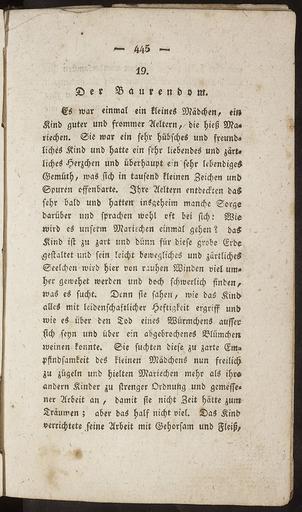 — 445 —
19.
Der Baurendom.
Es war einmal ein kleines Mädchen, ein
Kind guter und frommer Aeltern, die hieß Ma-
riechen. Sie war ein sehr hübsches und freund-
liches Kind und hatte ein sehr liebendes und zärt-
liches Herzchen und überhaupt ein sehr lebendiges
Gemüth, was sich in tausend kleinen Zeichen und
Spuren offenbarte. Ihre Aeltern entdeckten das
sehr bald und hatten insgeheim manche Sorge
darüber und sprachen wohl oft bei sich: Wie
wird es unserm Mariechen einmal gehen? das
Kind ist zu zart und dünn für diese grobe Erde
gestaltet und sein leicht bewegliches und zärtliches
Seelchen wird hier von rauhen Winden viel um-
her gewehet werden und doch schwerlich finden,
was es sucht. Denn sie sahen, wie das Kind
alles mit leidenschaftlicher Heftigkeit ergriff und
wie es über den Tod eines Würmchens ausser
sich seyn und über ein abgebrochenes Blümchen
weinen konnte. Sie suchten diese zu zarte Em-
pfindsamkeit des kleinen Mädchens nun freilich
zu zügeln und hielten Mariechen mehr als ihre
andern Kinder zu strenger Ordnung und gemesse-
ner Arbeit an, damit sie nicht Zeit hätte zum
Träumen; aber das half nicht viel. Das Kind
verrichtete seine Arbeit mit Gehorsam und Fleiß,